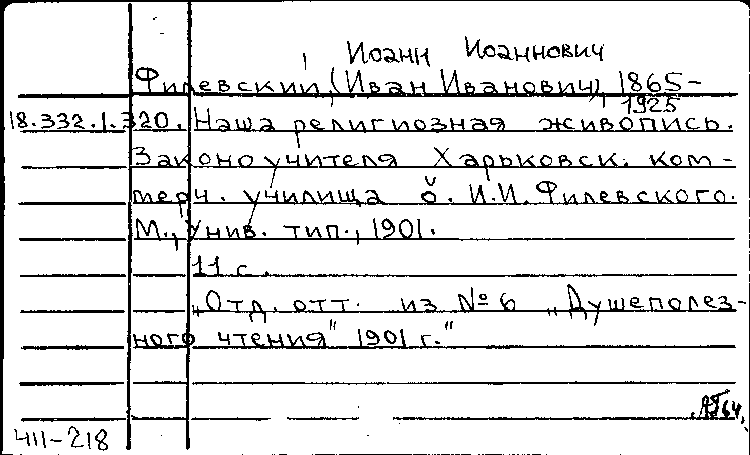 Иоанн Иоаннович
Филевский, (Иван Иванович), 1865-
1925
18.332.1.320. Наша религиозная живопись.
Законоучителя Харьковск. ком-
мерч. училища о. И.И. Филевского.
М., Унив. тип., 1901.
11 с.
„Отд. отт. из № 6 „Душеполез-
ного чтения" 1901 г."
411-218